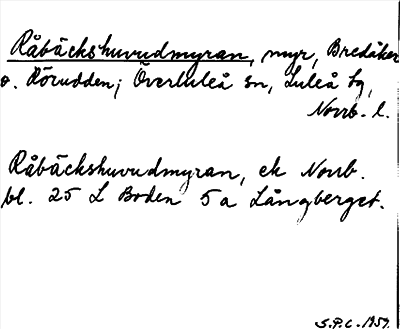 Råbäckshuvudmyran, myr, Bredåker
o. Rörudden; Överluleå sn, Luleå tg,
Norrb. l.
Råbäckshuvudmyran, ek Norrb.
bl. 25 L Boden 5 a Långberget.
S.P.C. 1959.